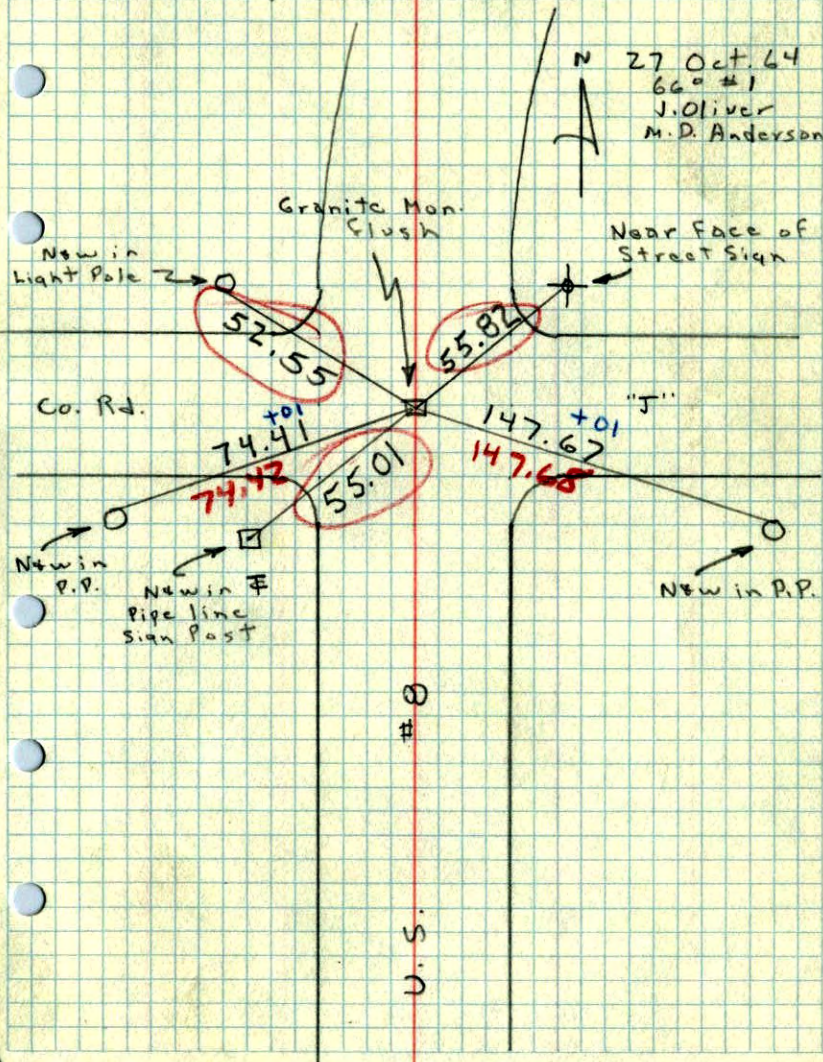 N
27 Oct. 64
66° #1
J. Oliver
M. D. Anderson
Granite Mon.
flush
Near Face of
Street Sign
N&W in
Light Pole
52.55
55.82
Co. Rd.
"J"
+01
74.41
74.42
55.01
+01
147.67
147.68
N&W in
P.P.
N&W in
Pipe line
Sign Post
N&W in P.P.
U.S. #8